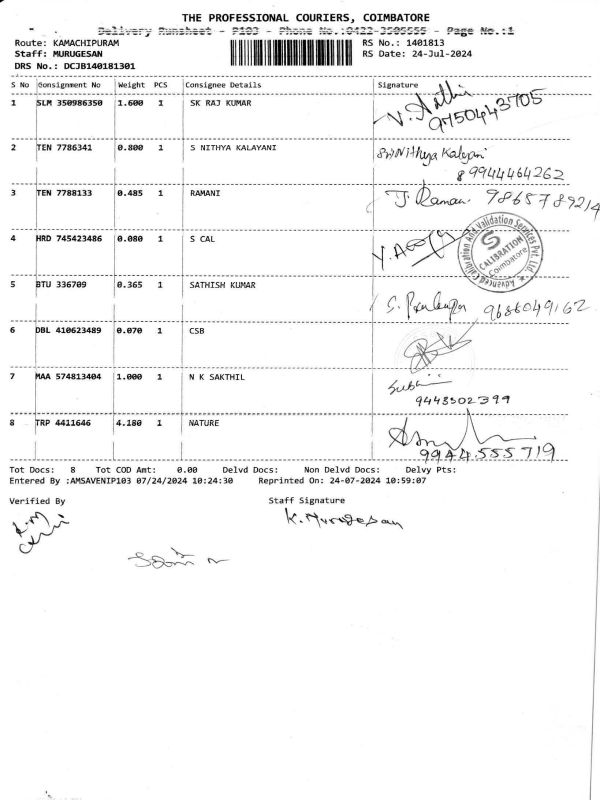 THE PROFESSIONAL COURIERS, COIMBATORE
Delivery Runsheet - P103 - Phone No.:0422-3505555 - Page No.:1
Route: KAMACHIPURAM RS No.: 1401813
Staff: MURUGESAN RS Date: 24-Jul-2024
DRS No.: DCJB140181301
S No Consignment No Weight PCS Consignee Details Signature
1 SLM 350986350 1.600 1 SK RAJ KUMAR
9750443705
2 TEN 7786341 0.800 1 S NITHYA KALAYANI Nithya Kalyani
9944464262
3 TEN 7788133 0.485 1 RAMANI J. Raman 9865789214
4 HRD 745423486 0.080 1 S CAL
Advanced Calibration And Validation Services Pvt. Ltd.
CALIBRATION
Coimbatore
5 BTU 336709 0.365 1 SATHISH KUMAR
9686049162
6 DBL 410623489 0.070 1 CSB
7 MAA 574813404 1.000 1 N K SAKTHIL
9448502399
8 TRP 4411646 4.180 1 NATURE
9944.555719
Tot Docs: 8 Tot COD Amt: 0.00 Delvd Docs: Non Delvd Docs: Delvy Pts:
Entered By :AMSAVENIP103 07/24/2024 10:24:30 Reprinted On: 24-07-2024 10:59:07
Verified By Staff Signature
K. Murugesan